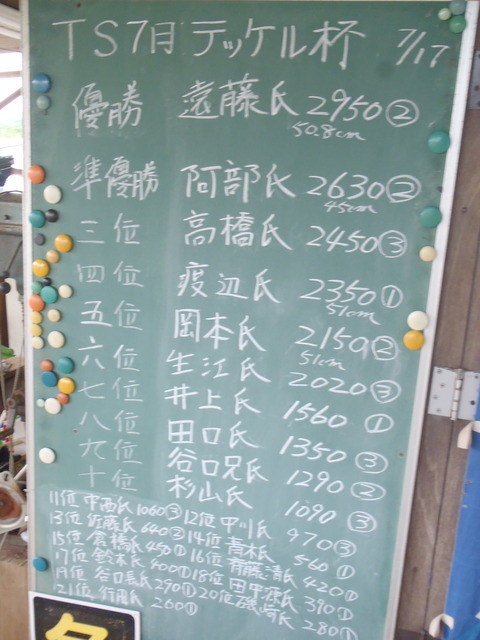 TS7月 デッケル杯 7/17
優勝 遠藤氏 2950②
50.8cm
準優勝 阿部氏 2630②
45cm
三位 高橋氏 2450③
四位 渡辺氏 2350①
51cm
五位 岡本氏 2150②
51cm
六位 生江氏 2020③
七位 井上氏 1560①
八位 田口氏 1350③
九位 谷口兄氏 1290②
十位 杉山氏 1090③
11位 中西氏 1060③ 12位 中川氏 970③
13位 佐藤氏 640② 14位 青木氏 560①
15位 倉橋氏 450① 16位 斎藤清氏 420①
17位 鈴木氏 400① 18位 田中 氏 390①
19位 谷口 氏 290① 20位 磯崎氏 280①
21位 行田氏 260①